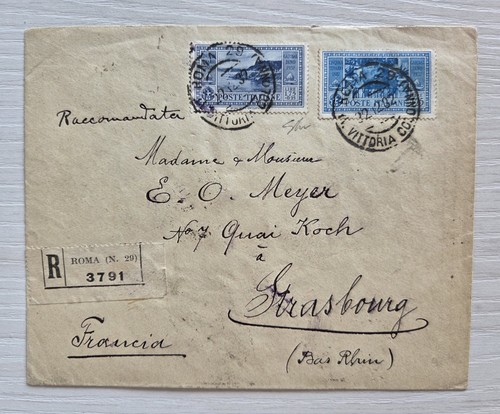 ROMA 29
V. VITTORIA COLONNA
POSTE ITALIANE
ROMA 29
V. VITTORIA COLONNA
POSTE ITALIANE
Raccomandata
Madame & Monsieur
E. O. Meyer
No 7 Quai Koch
à
Strasbourg
(Bas Rhin)
R
ROMA (N. 29)
3791
Francia